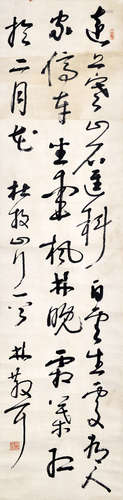 遠上寒山石徑斜白雲生處有人
家停車坐愛楓林晚霜葉紅
於二月花 杜牧山行一首 林散耳